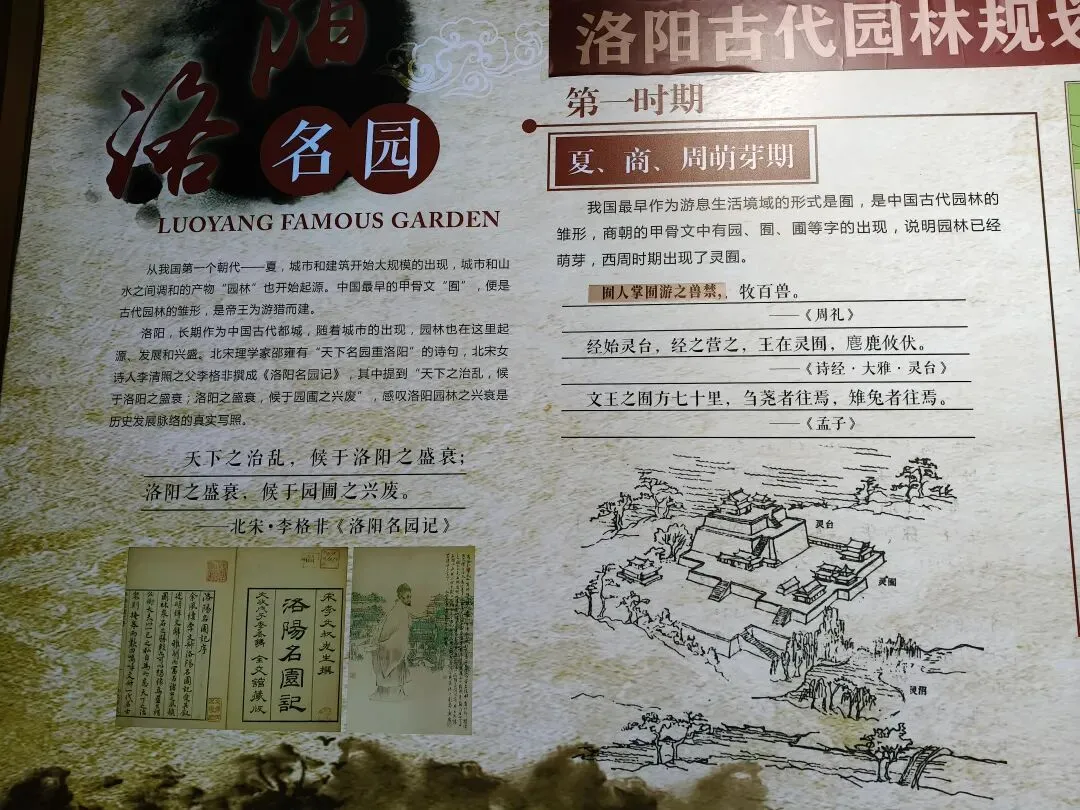 洛阳
名园
LUOYANG FAMOUS GARDEN
从我国第一个朝代——夏，城市和建筑开始大规模的出现，城市和山
水之间调和的产物“园林”也开始起源。中国最早的甲骨文“囿”，便是
古代园林的雏形，是帝王为游猎而建。
洛阳，长期作为中国古代都城，随着城市的出现，园林也在这里起
源、发展和兴盛。北宋理学家邵雍有“天下名园重洛阳”的诗句，北宋女
诗人李清照之父李格非撰成《洛阳名园记》，其中提到“天下之治乱，候
于洛阳之盛衰；洛阳之盛衰，候于园圃之兴废”，感叹洛阳园林之兴衰是
历史发展脉络的真实写照。
天下之治乱，候于洛阳之盛衰；
洛阳之盛衰，候于园圃之兴废。
——北宋·李格非《洛阳名园记》
宋李文叔先生撰
洛陽名園記
洛陽名園記序
洛阳古代园林规划
第一时期
夏、商、周萌芽期
我国最早作为游息生活境域的形式是囿，是中国古代园林的
雏形，商朝的甲骨文中有园、囿、圃等字的出现，说明园林已经
萌芽，西周时期出现了灵囿。
囿人掌囿游之兽禁，牧百兽。
——《周礼》
经始灵台，经之营之，王在灵囿，麀鹿攸伏。
——《诗经·大雅·灵台》
文王之囿方七十里，刍荛者往焉，雉兔者往焉。
——《孟子》
灵台
灵囿
灵沼